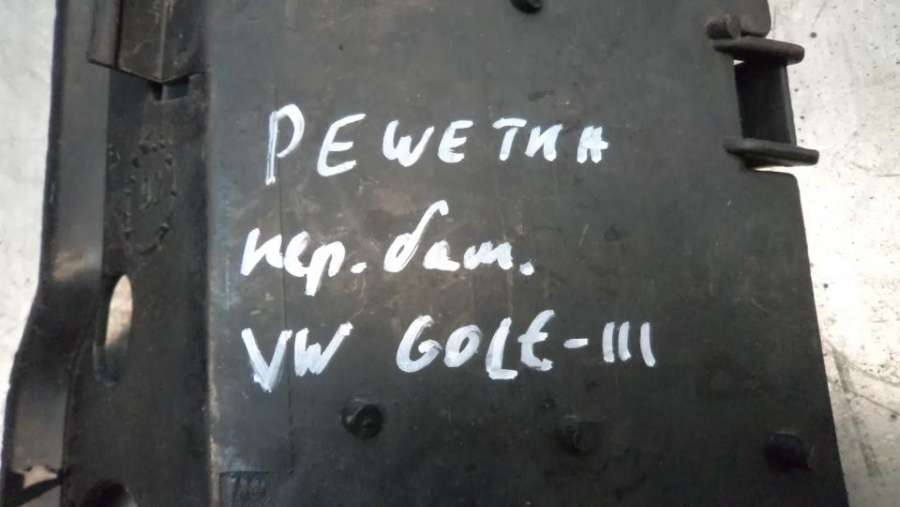 РЕШЕТКА
пер. бат.
VW GOLF-III